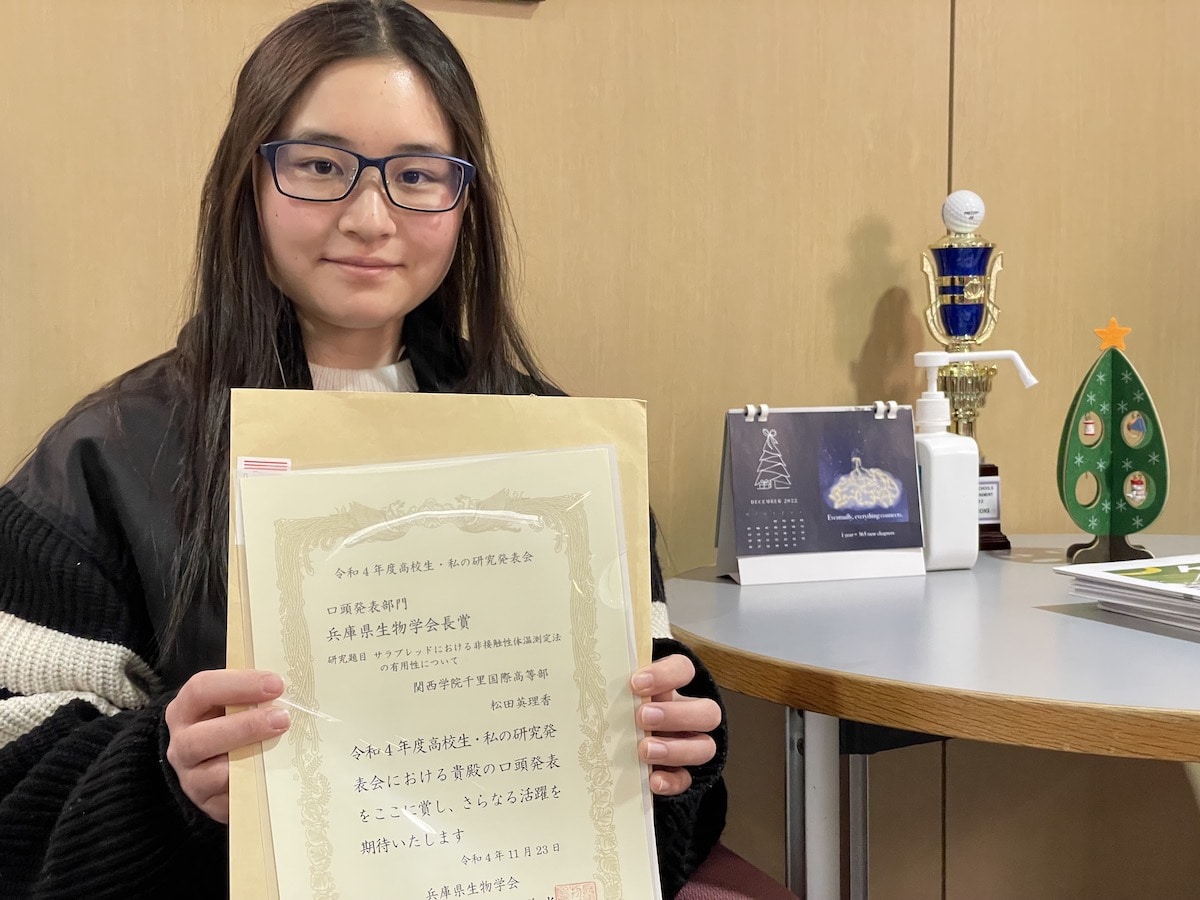 令和4年度高校生・私の研究発表会
口頭発表部門
兵庫県生物学会長賞
研究題目 サラブレッドにおける非接触性体温測定法
の有用性について
関西学院千里国際高等部
松田英理香
令和4年度高校生・私の研究発
表会における貴殿の口頭発表
をここに賞し、さらなる活躍を
期待いたします
令和4年11月23日
兵庫県生物学会
DECEMBER 2022
Eventually, everything connects.
1 year = 365 new chances